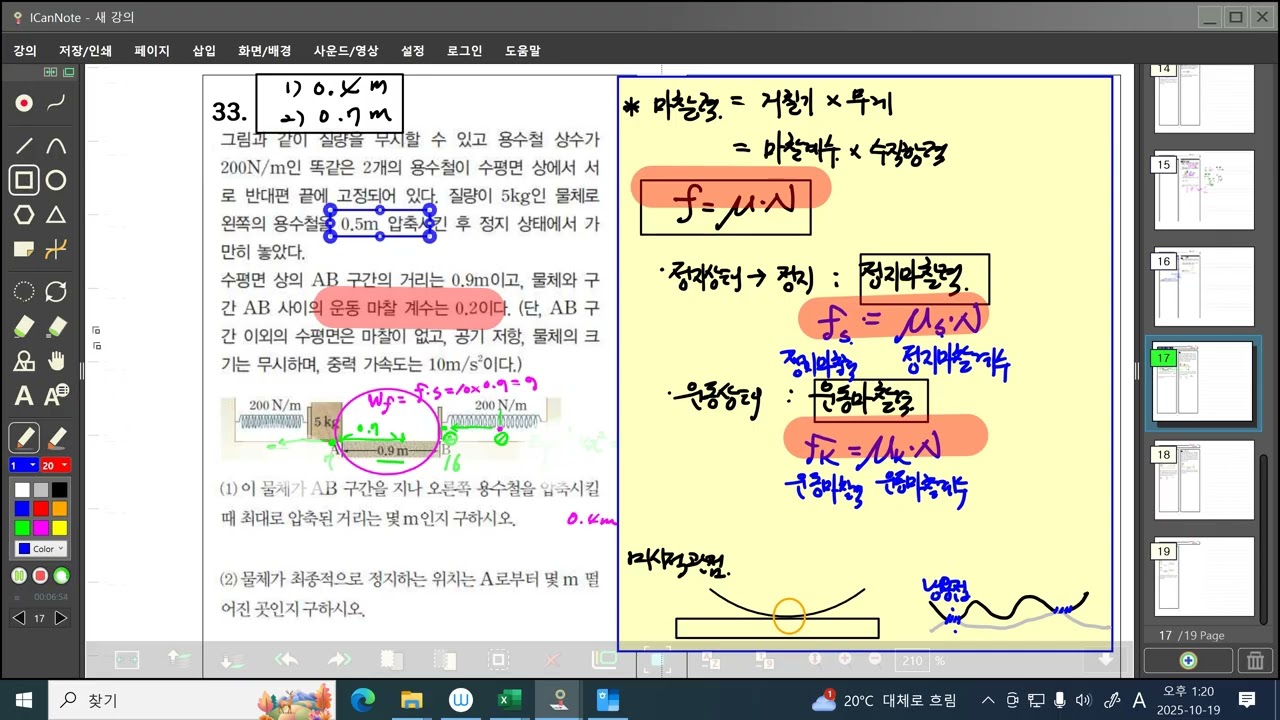 ICanNote - 새 강의
강의 저장/인쇄 페이지 삽입 화면/배경 사운드/영상 설정 로그인 도움말
1) 0.4 m
2) 0.7 m
33.
그림과 같이 질량을 무시할 수 있고 용수철 상수가
200N/m인 똑같은 2개의 용수철이 수평면 상에서 서
로 반대편 끝에 고정되어 있다. 질량이 5kg인 물체로
왼쪽의 용수철을 0.5m 압축시킨 후 정지 상태에서 가
만히 놓았다.
수평면 상의 AB 구간의 거리는 0.9m이고, 물체와 구
간 AB 사이의 운동 마찰 계수는 0.2이다. (단, AB 구
간 이외의 수평면은 마찰이 없고, 공기 저항, 물체의 크
기는 무시하며, 중력 가속도는 10m/s²이다.)
Wf = f·s = 10×0.9 = 9
200 N/m 5 kg 200 N/m
0.7
A 0.9 m B 16
(1) 이 물체가 AB 구간을 지나 오른쪽 용수철을 압축시킬
때 최대로 압축된 거리는 몇 m인지 구하시오. 0.4m
(2) 물체가 최종적으로 정지하는 위치는 A로부터 몇 m 떨
어진 곳인지 구하시오.
* 마찰력 = 거칠기 × 무게
= 마찰계수 × 수직항력
f = μ·N
· 정지상태 → 정지 : 정지마찰력
fs = μs·N
정지마찰력 정지마찰계수
· 운동상태 : 운동마찰력
fK = μK·N
운동마찰력 운동마찰계수
미시적 관점
14
15
16
17
18
19
1 20
Color
00:06:54
17
210 %
17 /19 Page
찾기
20°C 대체로 흐림
A
오후 1:20
2025-10-19